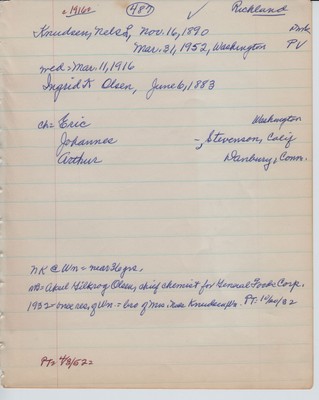 = 1916 = 487 ✓ Richland
Knudsen, Nels L, Nov. 16, 1890
Mar. 31, 1952, Washington PV
wed = Mar. 11, 1916
Ingrid K Olsen, June 6, 1883
ch = Eric Washington
Johannes -, Stevenson, Calif
Arthur Danbury, Conn.
NK @ Wn = near 36 yrs.
Olsen, chief chemist for General Foods Corp.
1932 = once res. of Wn. = bro of Mrs. Knudsen, Wn. PT.
PT = 4/3/52 =